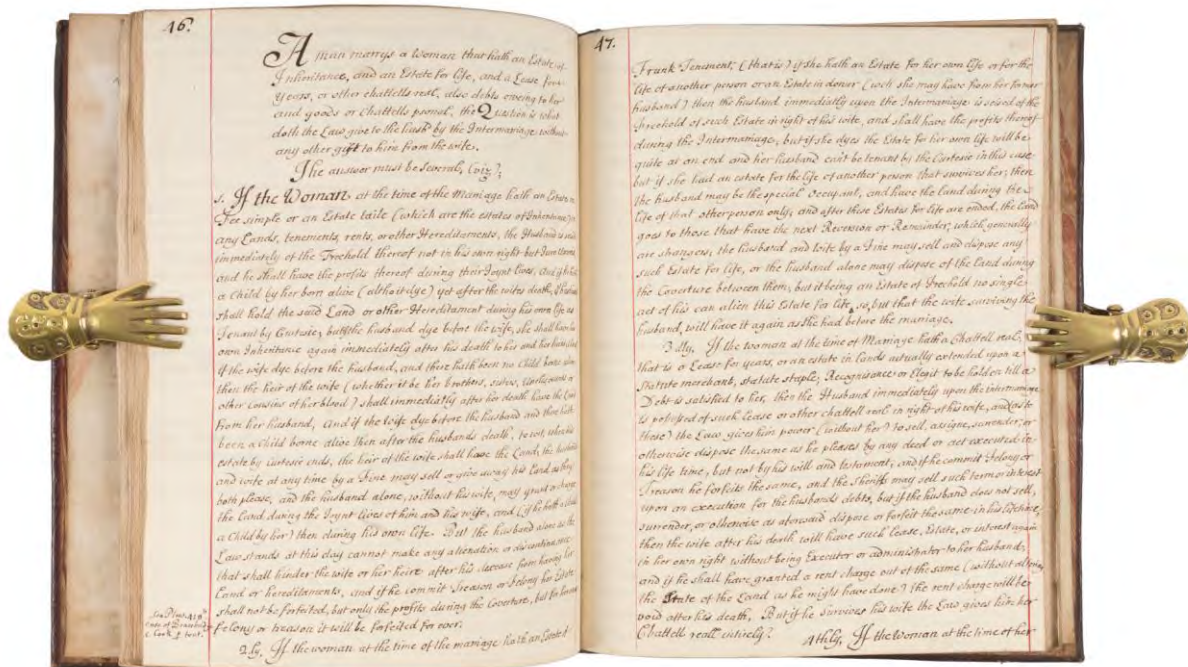 46.
A man marrys a Woman that hath an Estate of
Inheritance, and an Estate for life, and a Lease for
years, or other chattells real, also debts oweing to her
and goods or Chattells psonal, the Question is what
doth the Law give to the husbd by the Intermariage, without
any other gift to him from the wife.
The answer must be Several, (viz)
1. If the Woman at the time of the Mariage hath an Estate in
Fee simple or an Estate taile (which are the estates of Inheritance) in
any Lands, tenements, rents, or other Hereditaments, the Husband is
immediately of the Freehold thereof not in his own right but
and he shall have the profits thereof during their Joynt lives, And if he have
a Child by her born alive (altho it dye) yet after the wifes death,
shall hold the said Land or other Hereditament during his own life as
Tenant by Curtesie, but if the husband dye before the wife, she shall have her
own Inheritance again immediately after his death to her and her heirs, And
if the wife dye before the husband, and there hath born no Child borne alive
then the heir of the wife (whether it be her brothers, sisters, Uncles, Aunts or
other cousins of her blood) shall immediately after her death have the Land
from her husband, And if the wife dye before the husband and there hath
been a Child borne alive then after the husbands death, to wit, when his
estate by Curtesie ends, the heir of the wife shall have the Land, the husband
and wife at any time by a Fine may sell or give away his Land as they
both please, and the husband alone, without his wife, may grant or charge
the Land during the Joynt lives of him and his wife, and (if he hath a Child
a Child by her) then during his own life. But the husband alone as the
Law stands at this day cannot make any alienation or discontinuance
that shall hinder the wife or her heire after his decease from having her
Land or hereditaments, and if he commit Treason or felony her Estate
shall not be forfeited, but only the profits during the Coverture, but for
felony or treason it will be forfeited for ever.
2ly, If the woman at the time of the marriage hath an Estate of
47.
Frank Tenement, (that is) if she hath an Estate for her own life or for the
life of another person or an Estate in dower (wch she may have from her former
husband) then the husband immediately upon the Intermariage is seised of the
freehold of such Estate in right of his wife, and shall have the profits thereof
during the Intermariage, but if she dyes the Estate for her own life will be
quite at an end and her husband can't be tenant by the Curtesie in this case
but if she had an estate for the life of another person that survives her, then
the husband may be the special Occupant, and have the land during the
life of that other person only, and after these Estates for life are ended, the land
goes to those that have the next Reversion or Remainder, which generally
are strangers, the husband and wife by a Fine may sell and dispose any
such Estate for life, or the husband alone may dispose of the Land during
the Coverture between them, but it being an Estate of Freehold no single
act of his can alien this Estate for life, so, but that the wife surviving the
husband, will have it again as she had before the mariage.
3dly, If the woman at the time of Mariage hath a Chattell real,
that is a Lease for years, or an estate in Lands actually extended upon a
Statute merchant, statute staple, Recognisence or Elegit to be holden till a
Debt is satisfied to her, then the Husband immediately upon the intermariage
is possessed of such lease or other chattell real in right of his wife, and (as to
these) the Law gives him power (without her) to sell, assigne, surrender, or
otherwise dispose the same as he pleases by any deed or act executed in
his life time, but not by his will and testament, and if he commit Felony or
Treason he forfeits the same, and the Sheriffs may sell such term or interest
upon an execution for the husbands debts, but if the husband does not sell,
surrender, or otherwise as aforesaid dispose or forfeit the same in his lifetime,
then the wife after his death will have such lease, Estate, or interest again
in her own right without being Executor or administrator to her husband,
and if he shall have granted a rent charge out of the same (without altering
the Estate of the Land as he might have done) the rent charge will be
void after his death, But if he survives his wife the Law gives him her
Chattell reall intirely?
4thly, If the woman at the time of her